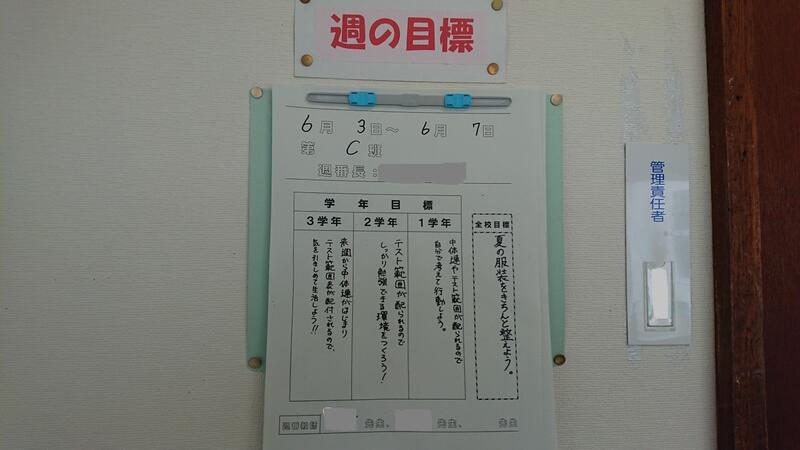 週の目標
6月 3日〜 6月 7日
第 C 班
週番長：
学年目標
3学年
2学年
1学年
全校目標
夏の服装をきちんと整えよう。
中体連やテスト範囲が配られるので
自分で考えて行動しよう。
テスト範囲が配られるので
しっかり勉強できる環境をつくろう！
来週から中体連がはじまり
テスト範囲表が配付されるので、
気を引きしめて生活しよう!!
週番教師
先生、
先生、
先生
管理責任者